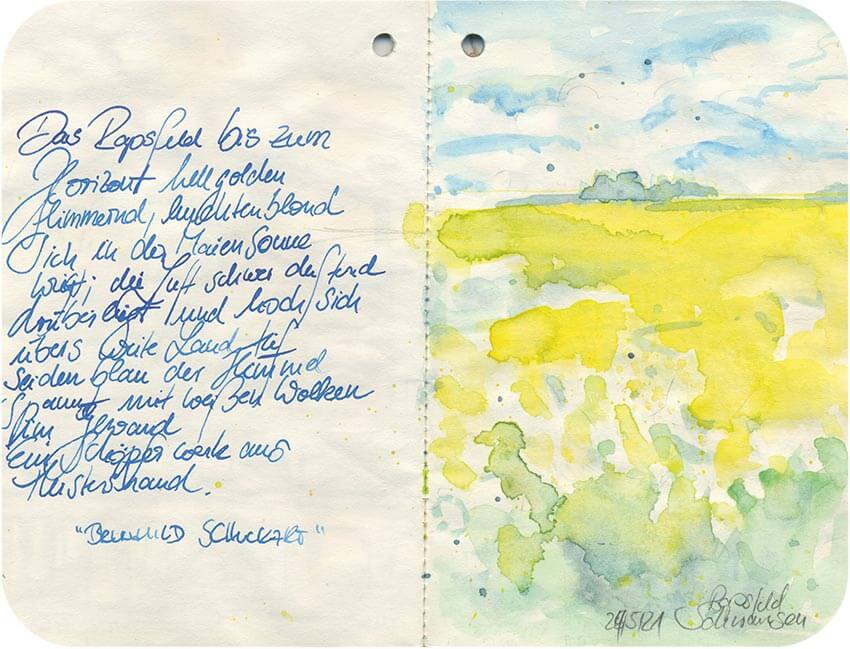 Das Rapsfeld bis zum
Horizont hellgolden
flimmernd, leuchtenblond
sich in der Maiensonne
wiegt; die Luft schwer duftend
drüber liegt und hoch sich
übers weite Land, tief
seidenblau der Himmel
spannt mit weißen Wolken
im Gewand
ein Schöpferwerk aus
Meistershand.
"BRUNHILD SCHUCKART"
Rapsfeld
5/21